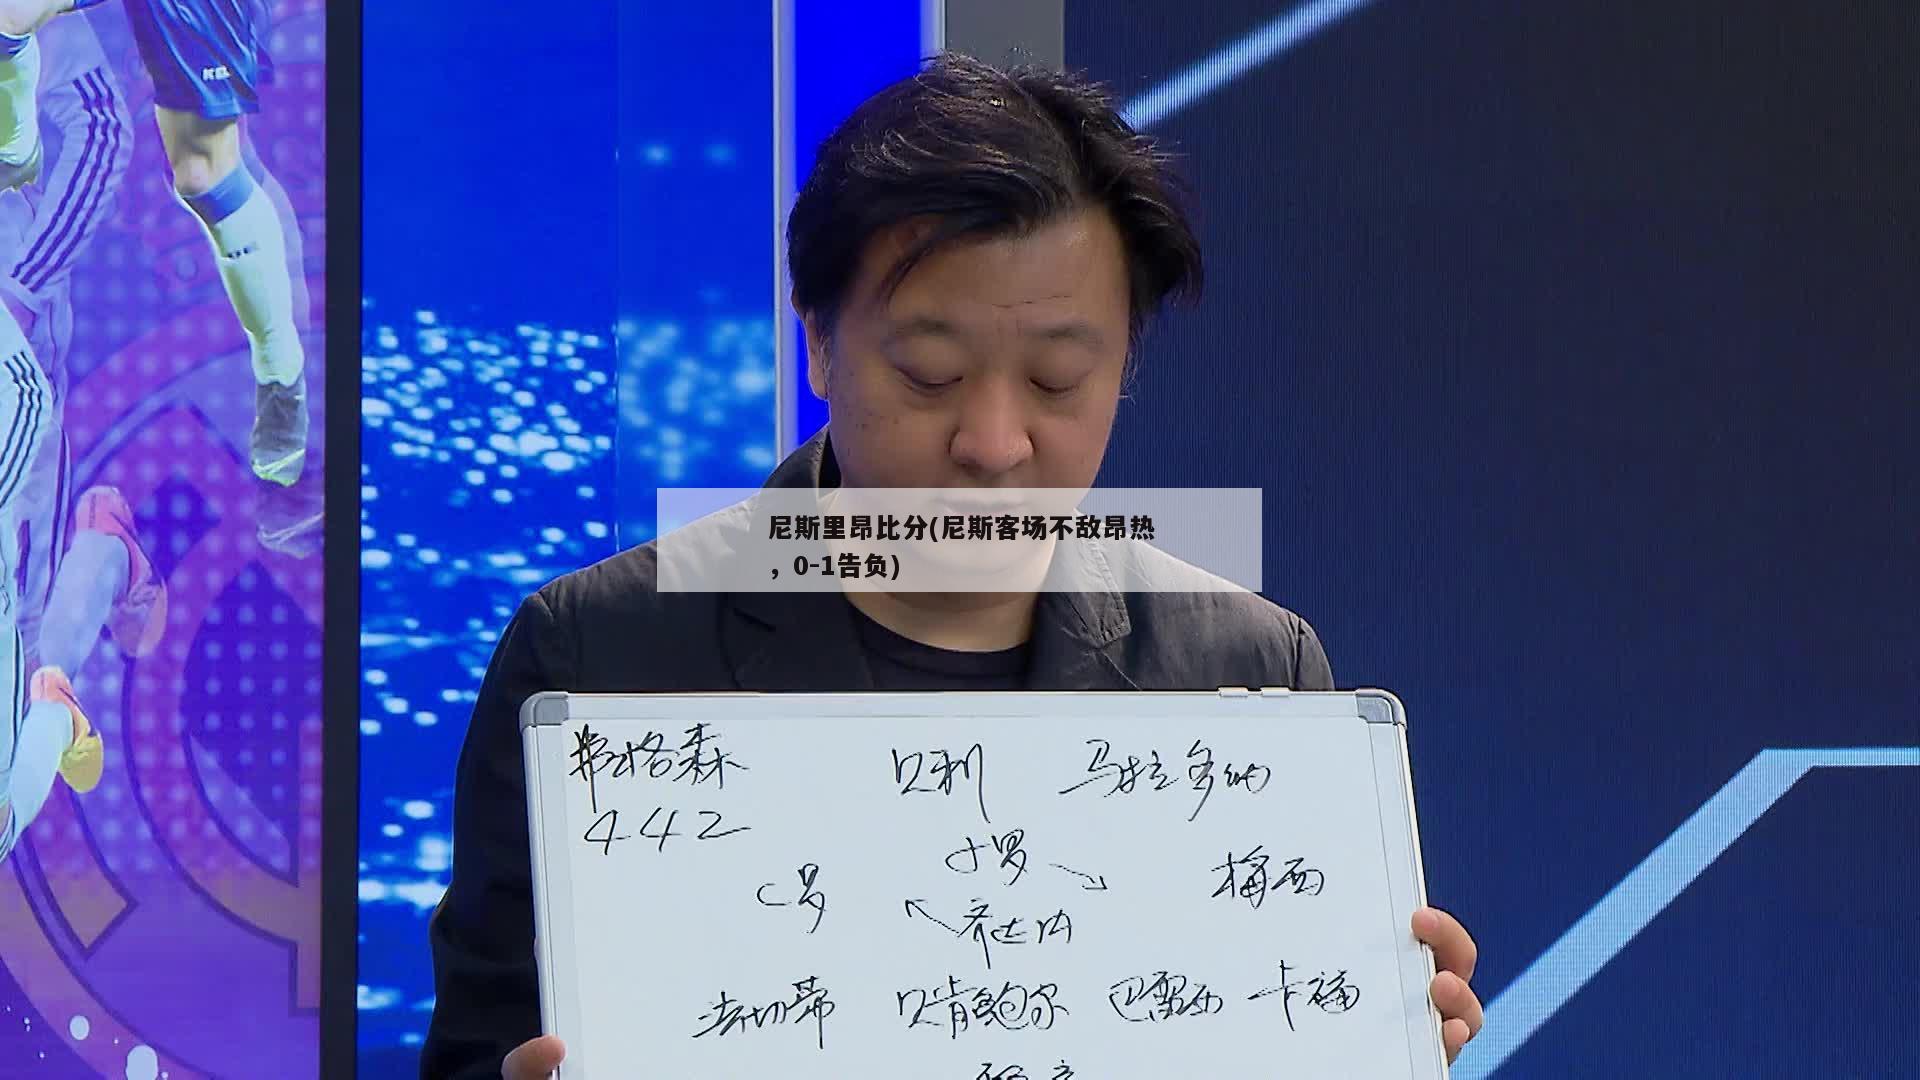 尼斯里昂比分(尼斯客场不敌昂热
，0-1告负)
弗格森 贝利 马拉多纳
442
小罗
C罗 梅西
齐达内
法切蒂 贝肯鲍尔 巴雷西 卡福